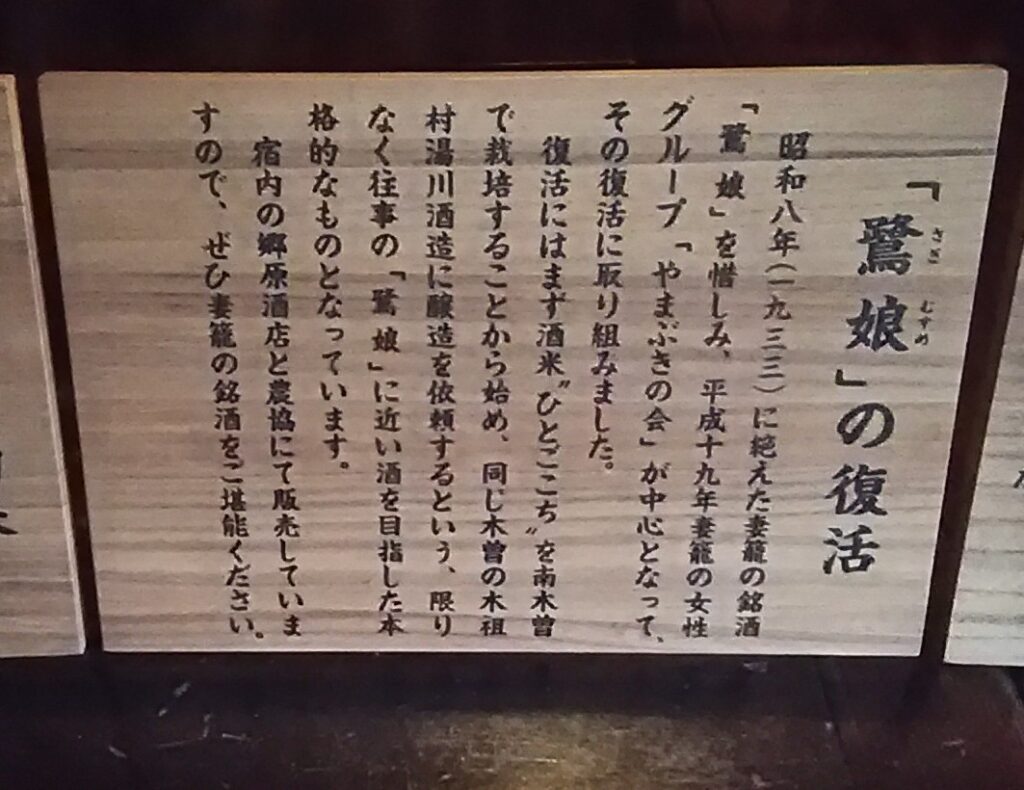 「鷺娘」の復活
さぎ むすめ
昭和八年(一九三三)に絶えた妻籠の銘酒
「鷺娘」を惜しみ、平成十九年妻籠の女性
グループ「やまぶきの会」が中心となって、
その復活に取り組みました。
復活にはまず酒米〝ひとごこち〟を南木曽
で栽培することから始め、同じ木曽の木祖
村湯川酒造に醸造を依頼するという、限り
なく往事の「鷺娘」に近い酒を目指した本
格的なものとなっています。
宿内の郷原酒店と農協にて販売していま
すので、ぜひ妻籠の銘酒をご堪能ください。